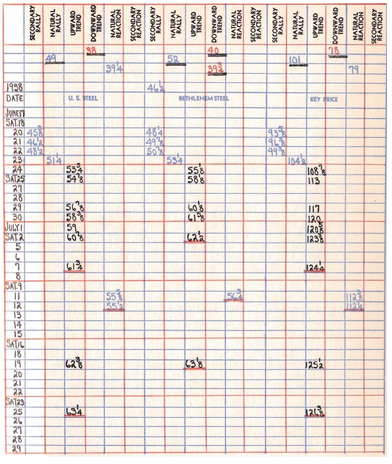 SECONDARY RALLY NATURAL RALLY UPWARD TREND DOWNWARD TREND NATURAL REACTION SECONDARY REACTION SECONDARY RALLY NATURAL RALLY UPWARD TREND DOWNWARD TREND NATURAL REACTION SECONDARY REACTION SECONDARY RALLY NATURAL RALLY UPWARD TREND DOWNWARD TREND NATURAL REACTION SECONDARY REACTION
38 40 78
49 52 101
39¼ 39¾ 79
1938 46½
DATE U.S. STEEL BETHLEHEM STEEL KEY PRICE
JUNE17
SAT.18
20 45⅜ 48¼ 93⅝
21 46½ 49⅞ 96⅜
22 48½ 50⅞ 99⅜
23 51¼ 53¼ 104½
24 53¾ 55⅛ 108⅞
SAT.25 54⅞ 58⅛ 113
27
28
29 56⅞ 60⅛ 117
30 58⅜ 61⅝ 120
JULY1 59 120⅝
SAT.2 60⅞ 62½ 123⅜
5
6
7 61¾ 124¼
8
SAT.9
11 55⅝ 56¾ 112⅜
12 55½ 112¼
13
14
15
SAT.16
18
19 62⅜ 63⅛ 125½
20
21
22
SAT.23
25 63¼ 126⅜
26
27
28
29